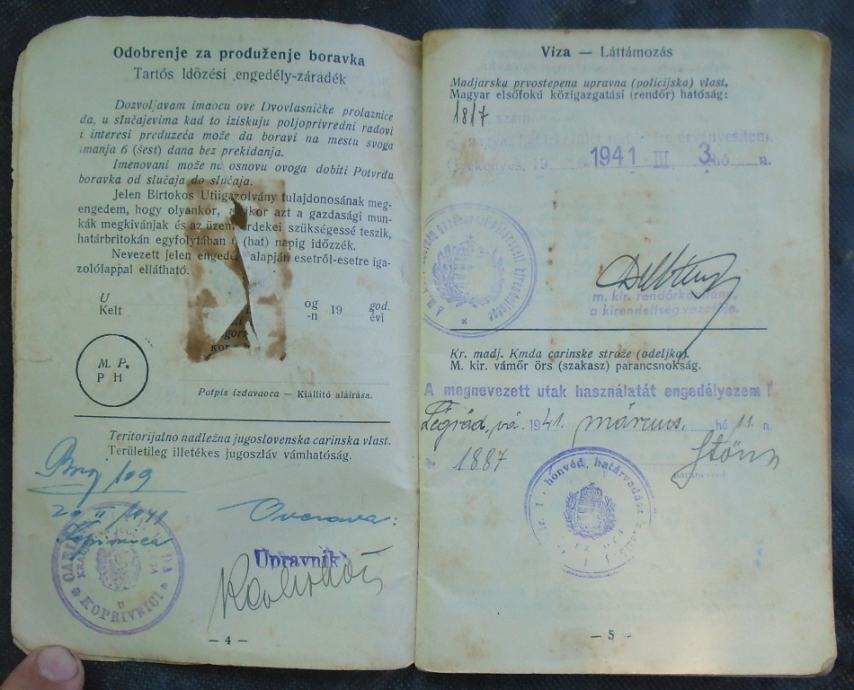 Odobrenje za produženje boravka
Tartós Időzési engedély-záradék
Dozvoljavam imaocu ove Dvovlasničke prolaznice
da, u slučajevima kad to iziskuju poljoprivredni radovi
i interesi preduzeća može da boravi na mestu svoga
imanja 6 (šest) dana bez prekidanja.
Imenovani može na osnovu ovoga dobiti Potvrdu
boravka od slučaja do slučaja.
Jelen Birtokos Utiigazolvány tulajdonosának meg-
engedem, hogy olyankor, azt a gazdasági mun-
kák megkivánjak és az érdekei szükségessé teszik,
határbritokán egyfolytában (hat) napig időzzék.
Nevezett jelen alapján esetről-esetre iga-
zolólappal ellátható.
U og 19 god.
Kelt -n évi
M. P.
P H
Potpis izdavaoca — Kiállító aláírása.
Teritorijalno nadležna jugoslovenska carinska vlast.
Területileg illetékes jugoszláv vámhatóság.
Broj 109
1941
Overava:
Upravnik
U
KOPRIVNICI
— 4 —
Viza — Láttámozás
Madjarska prvostepena upravna (policijska) vlast.
Magyar elsőfokú közigazgatási (rendőr) hatóság:
18/7 szám
1941 III 3 hó n.
m. kir. rendőrkapitány,
a kirendeltség vezetője.
Kr. madj. Kmda carinske straže (odeljka).
M. kir. vámőr örs (szakasz) parancsnokság.
A megnevezett utak használatát engedélyezem!
Légrád, 1941. március hó 11 n.
1887
honvéd határvadász
— 5 —